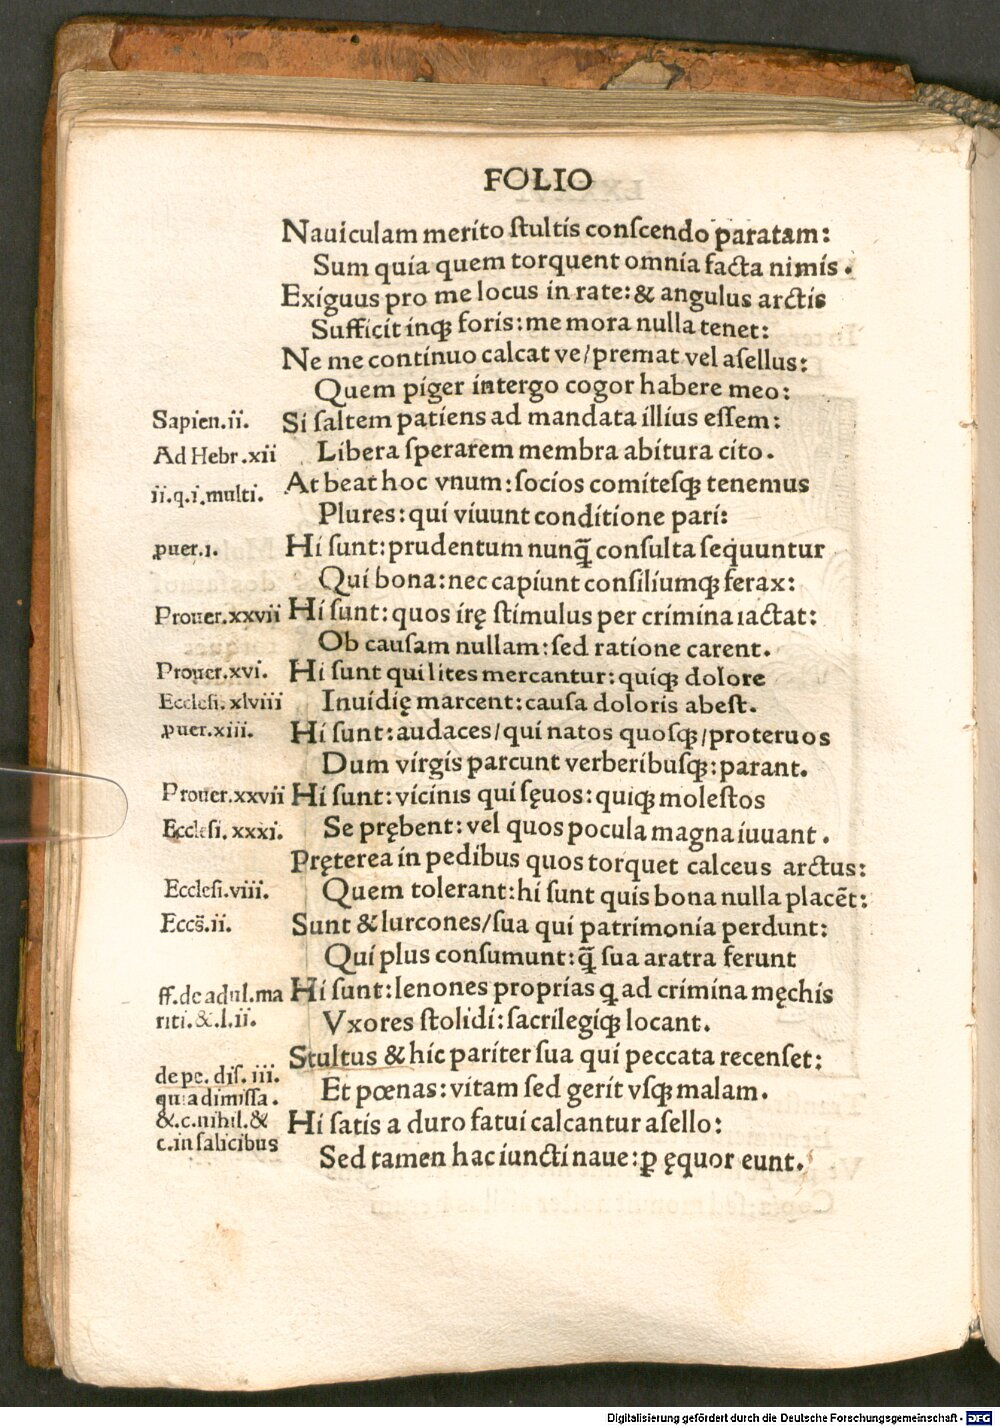 FOLIO
Nauiculam merito ſtultis conſcendo paratam:
Sum quia quem torquent omnia facta nimis.
Exiguus pro me locus in rate: & angulus arctis
Sufficit inqꝫ foris: me mora nulla tenet:
Ne me continuo calcat ve/premat vel aſellus:
Quem piger intergo cogor habere meo:
Sapien.ii. Si ſaltem patiens ad mandata illius eſſem:
Ad Hebr.xii Libera ſperarem membra abitura cito.
ii.q.i.multi. At beat hoc vnum: ſocios comiteſqꝫ tenemus
Plures: qui viuunt conditione pari:
ꝓuer.1. Hi ſunt: prudentum nunq̃ conſulta ſequuntur
Qui bona: nec capiunt conſiliumqꝫ ferax:
Prouer.xxvii Hi ſunt: quos irę ſtimulus per crimina iactat:
Ob cauſam nullam: ſed ratione carent.
Prouer.xvi. Hi ſunt qui lites mercantur: quiqꝫ dolore
Eccleſi.xlviii Inuidię marcent: cauſa doloris abeſt.
ꝓuer.xiii. Hi ſunt: audaces/qui natos quoſqꝫ/proteruos
Dum virgis parcunt verberibuſqꝫ: parant.
Prouer.xxvii Hi ſunt: vicinis qui ſęuos: quiqꝫ moleſtos
Eccleſi.xxxi. Se prębent: vel quos pocula magna iuuant.
Pręterea in pedibus quos torquet calceus arctus:
Eccleſi.viii. Quem tolerant: hi ſunt quis bona nulla placēt:
Eccs̈.ii. Sunt & lurcones/ſua qui patrimonia perdunt:
Qui plus conſumunt: q̃ ſua aratra ferunt
ff.de adul.ma Hi ſunt: lenones proprias q ad crimina męchis
riti.&.l.ii. Vxores ſtolidi: ſacrilegiqꝫ locant.
Stultus & hic pariter ſua qui peccata recenſet:
de pe. diſ. iii. Et pœnas: vitam ſed gerit vſqꝫ malam.
quia dimiſſa.
&.c.nihil.& Hi ſatis a duro fatui calcantur aſello:
c.in ſalicibus Sed tamen hac iuncti naue: ꝑ ęquor eunt.
Digitalisierung gefördert durch die Deutsche Forschungsgemeinschaft - DFG